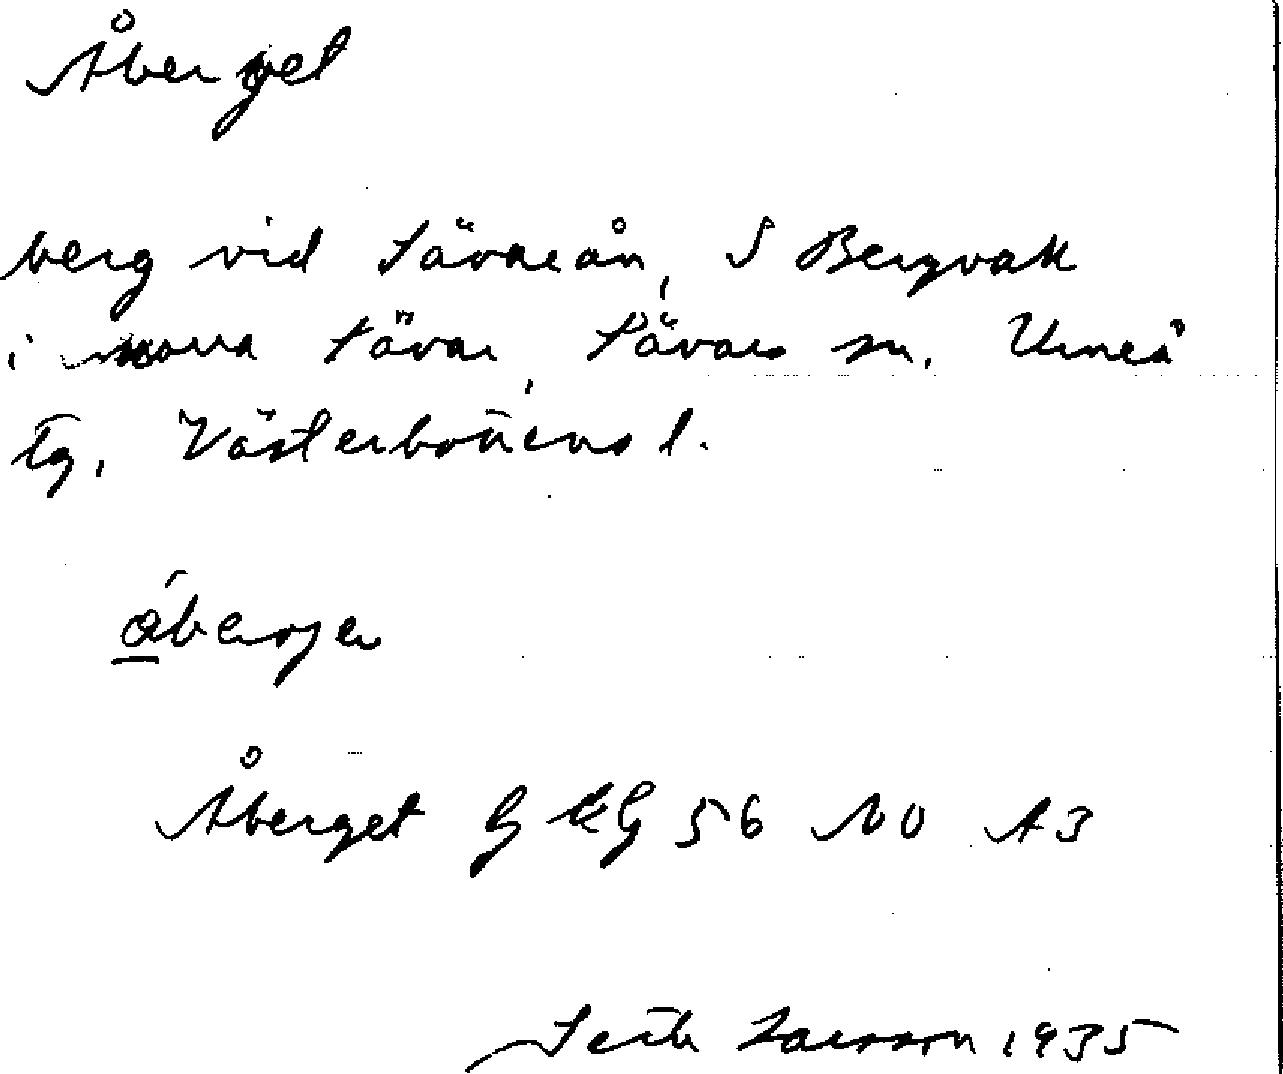 Åberget
berg vid Sävarån, S Bergvall
i norra Sävar, Sävars sn. Umeå
tg. Västerbottens l.
Åberget G KG 56 NO A3
Seth Larsson 1935